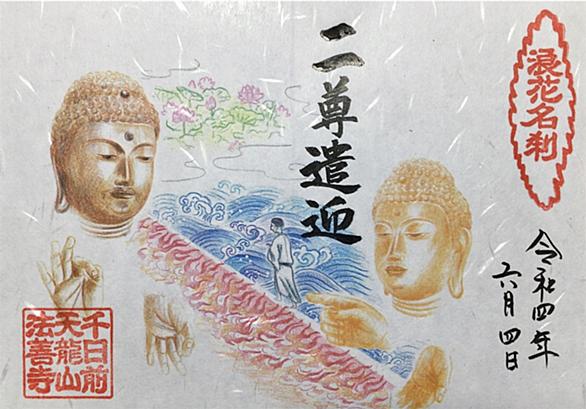 浪花名刹
令和四年
六月四日
二尊遣迎
千日前
天龍山
法善寺